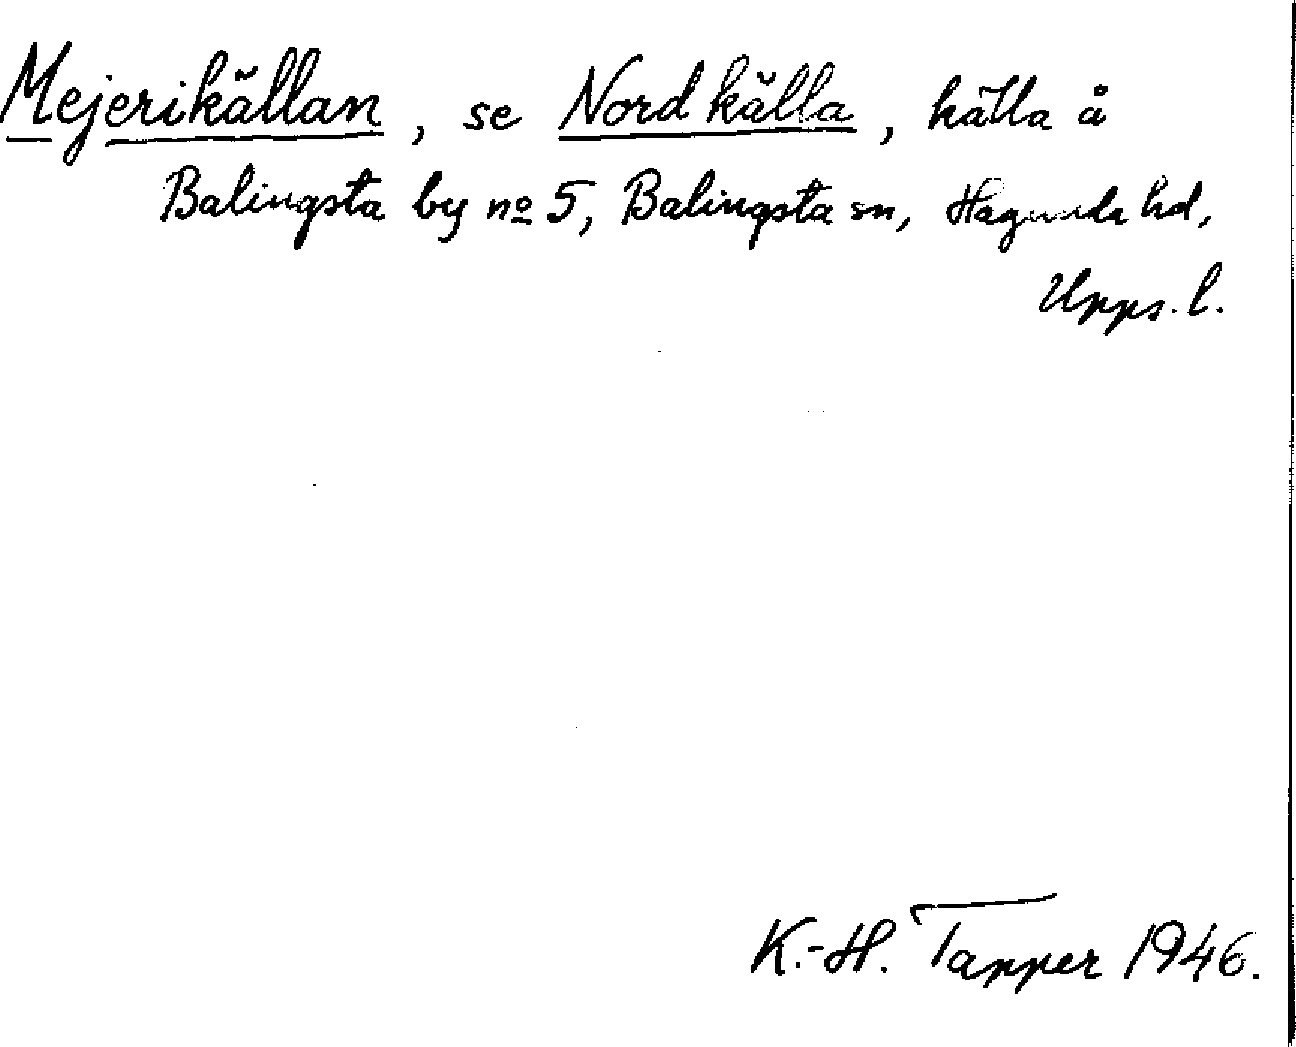 Mejerikällan, se Nordkälla, källa å
Balingsta by no 5, Balingsta sn, Hagunda hd,
Upps. l.
K.-H. Tapper 1946.